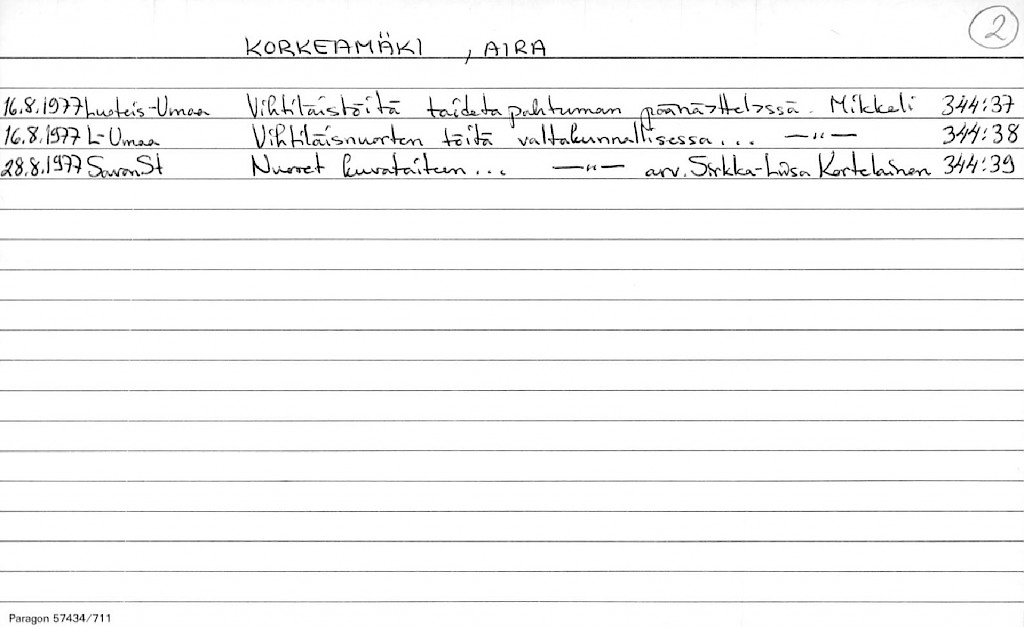 2
KORKEAMÄKI , AIRA
16.8.1977 Luoteis-Umaa Vihtiläistöitä taidetapahtuman päänä>ttel>ssä. Mikkeli 344:37
16.8.1977 L-Umaa Vihtiläisnuorten töitä valtakunnallisessa... —"— 344:38
28.8.1977 Savon St Nuoret kuvataiteen... —"— arv. Sirkka-Liisa Kortelainen 344:39
Paragon 57434/711